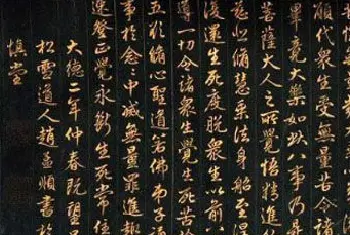 願代眾生受無量苦令諸
畢竟大樂如此八事乃是
菩薩大人之所覺悟精進
慈悲脩慧乘法身船至涅
還生死度脫眾生以前八
導一切令諸眾生覺生死苦
五欲脩心聖道若佛弟子誦
事於念念中滅無量罪進趣
速登正覺永斷生死常住
大德二年仲春既望
松雪道人趙孟頫書於
慎堂